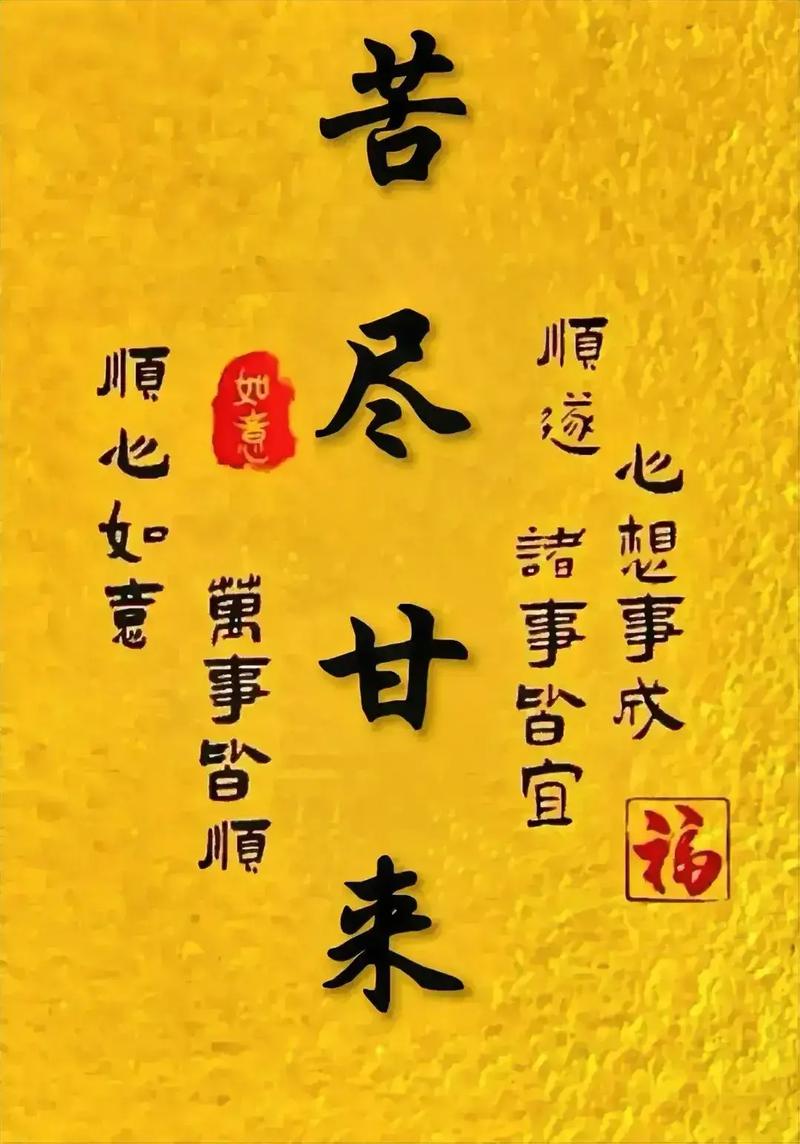 苦尽甘来
心想事成
福
順遂
諸事皆宜
如意
萬事皆順
順心如意